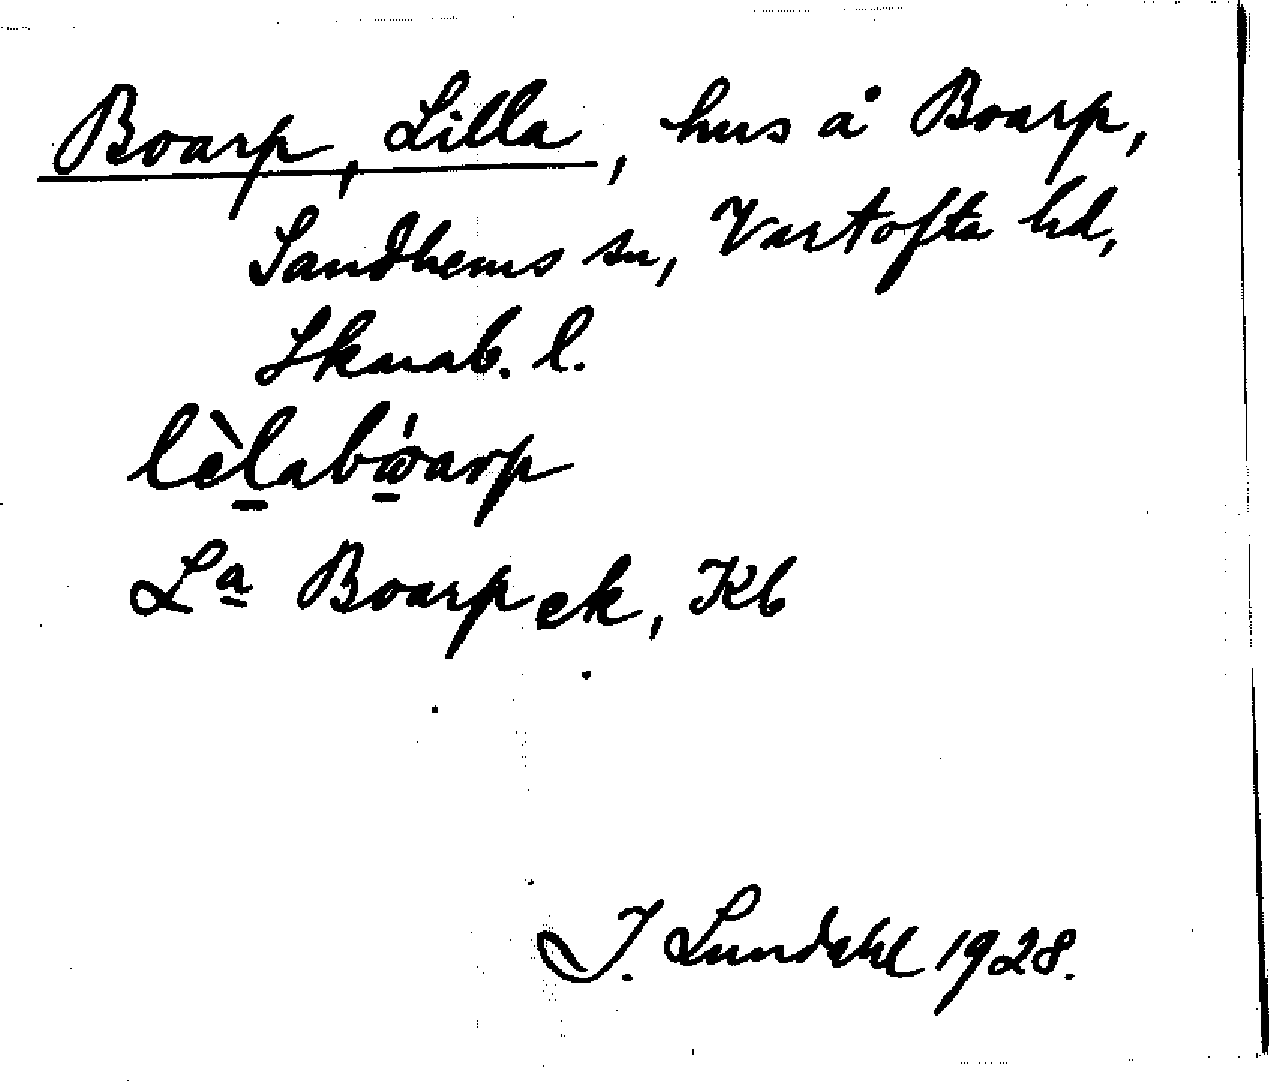 Boarp, Lilla, hus å Boarp,
Sandhems sn, Vartofta hd,
Skarab. l.
lèlaboarp
La Boarp ek, Kb
I. Lundahl 1928.